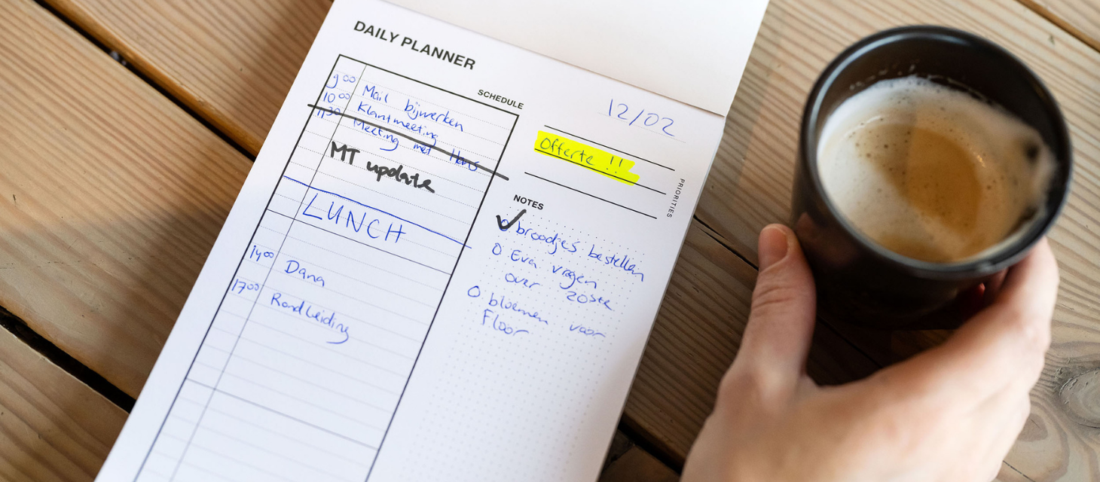 DAILY PLANNER
SCHEDULE
12/02
9 00 Mail bijwerken
10 00 Klantmeeting
11 30 Meeting met Hans
MT update
LUNCH
14 00 Dana
17 00 Rondleiding
Offerte !!
PRIORITIES
NOTES
broodjes bestellen
Eva vragen
over 20ste
bloemen voor
Floor